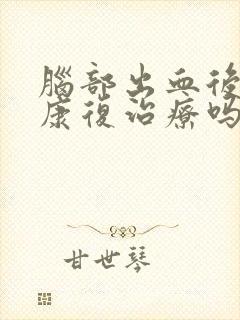 腦部出血後
康復治療嗎
甘世琴